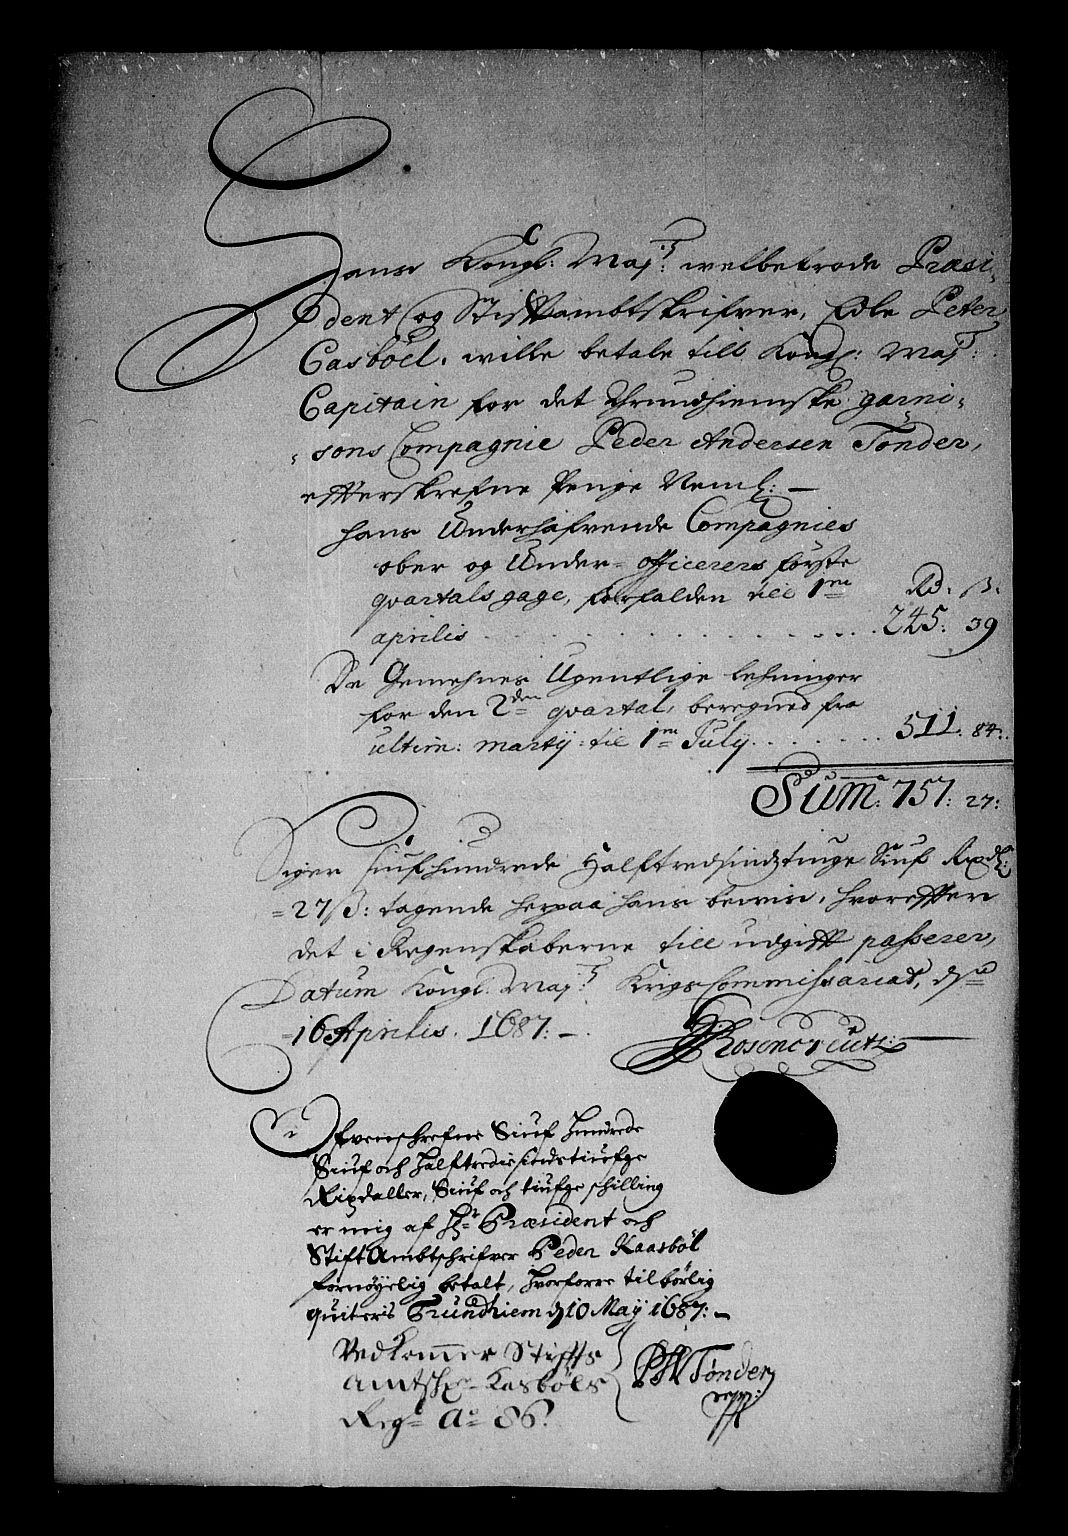 Hans Kongl: Maj:ts welbetrode Præsi-
dent og Stifftambtskrifver, Edle Peter
Casböel, wille betale till Kongl: Maj:ts
Capitain for det Thrundhiemske garni-
sons Compagnie Peder Andersen Tönder,
effterskrefne Penge Neml: —
hans Underhafvende Compagnies
ober og Under- officerers förste
qvartals gage, forfalden till 1me Rd: ß:
aprilis . . . . . . . . . . 245: 39
De Gemehnes Ugentlige lehninger
for den 2den qvartal, beregned fra
ultim: martij: til 1me July . . . . . . . 511. 84:
Summa: 757: 27:
Siger siufhundrede halftredsindztiuge Siuf Rixdlr:
27 ß: tagende herpaa hans beviis, hvorefften
det i Regenskaberne till udgifft passerer,
Datum Kongl. Maj:ts Krigs Commissariat, d:
16 Aprilis. 1687: —
Rosencreutz:
Ofvenschrefne Siuf Hundrede
Siuf och halftrediesindstiufge
Rixdaller, Siuf och tiufge schilling
er mig af Hr: Præsident och
Stift Ambtschrifver Peder Kaasböl
fornøyelig betalt, hvorforre tilbørlig
quiteris Trundhiem d 10 Maij 1687: —
Vedkommer Stiffts
amtschr: Kasböls
Reg: Ao 86.
PA Tønder
mpp: